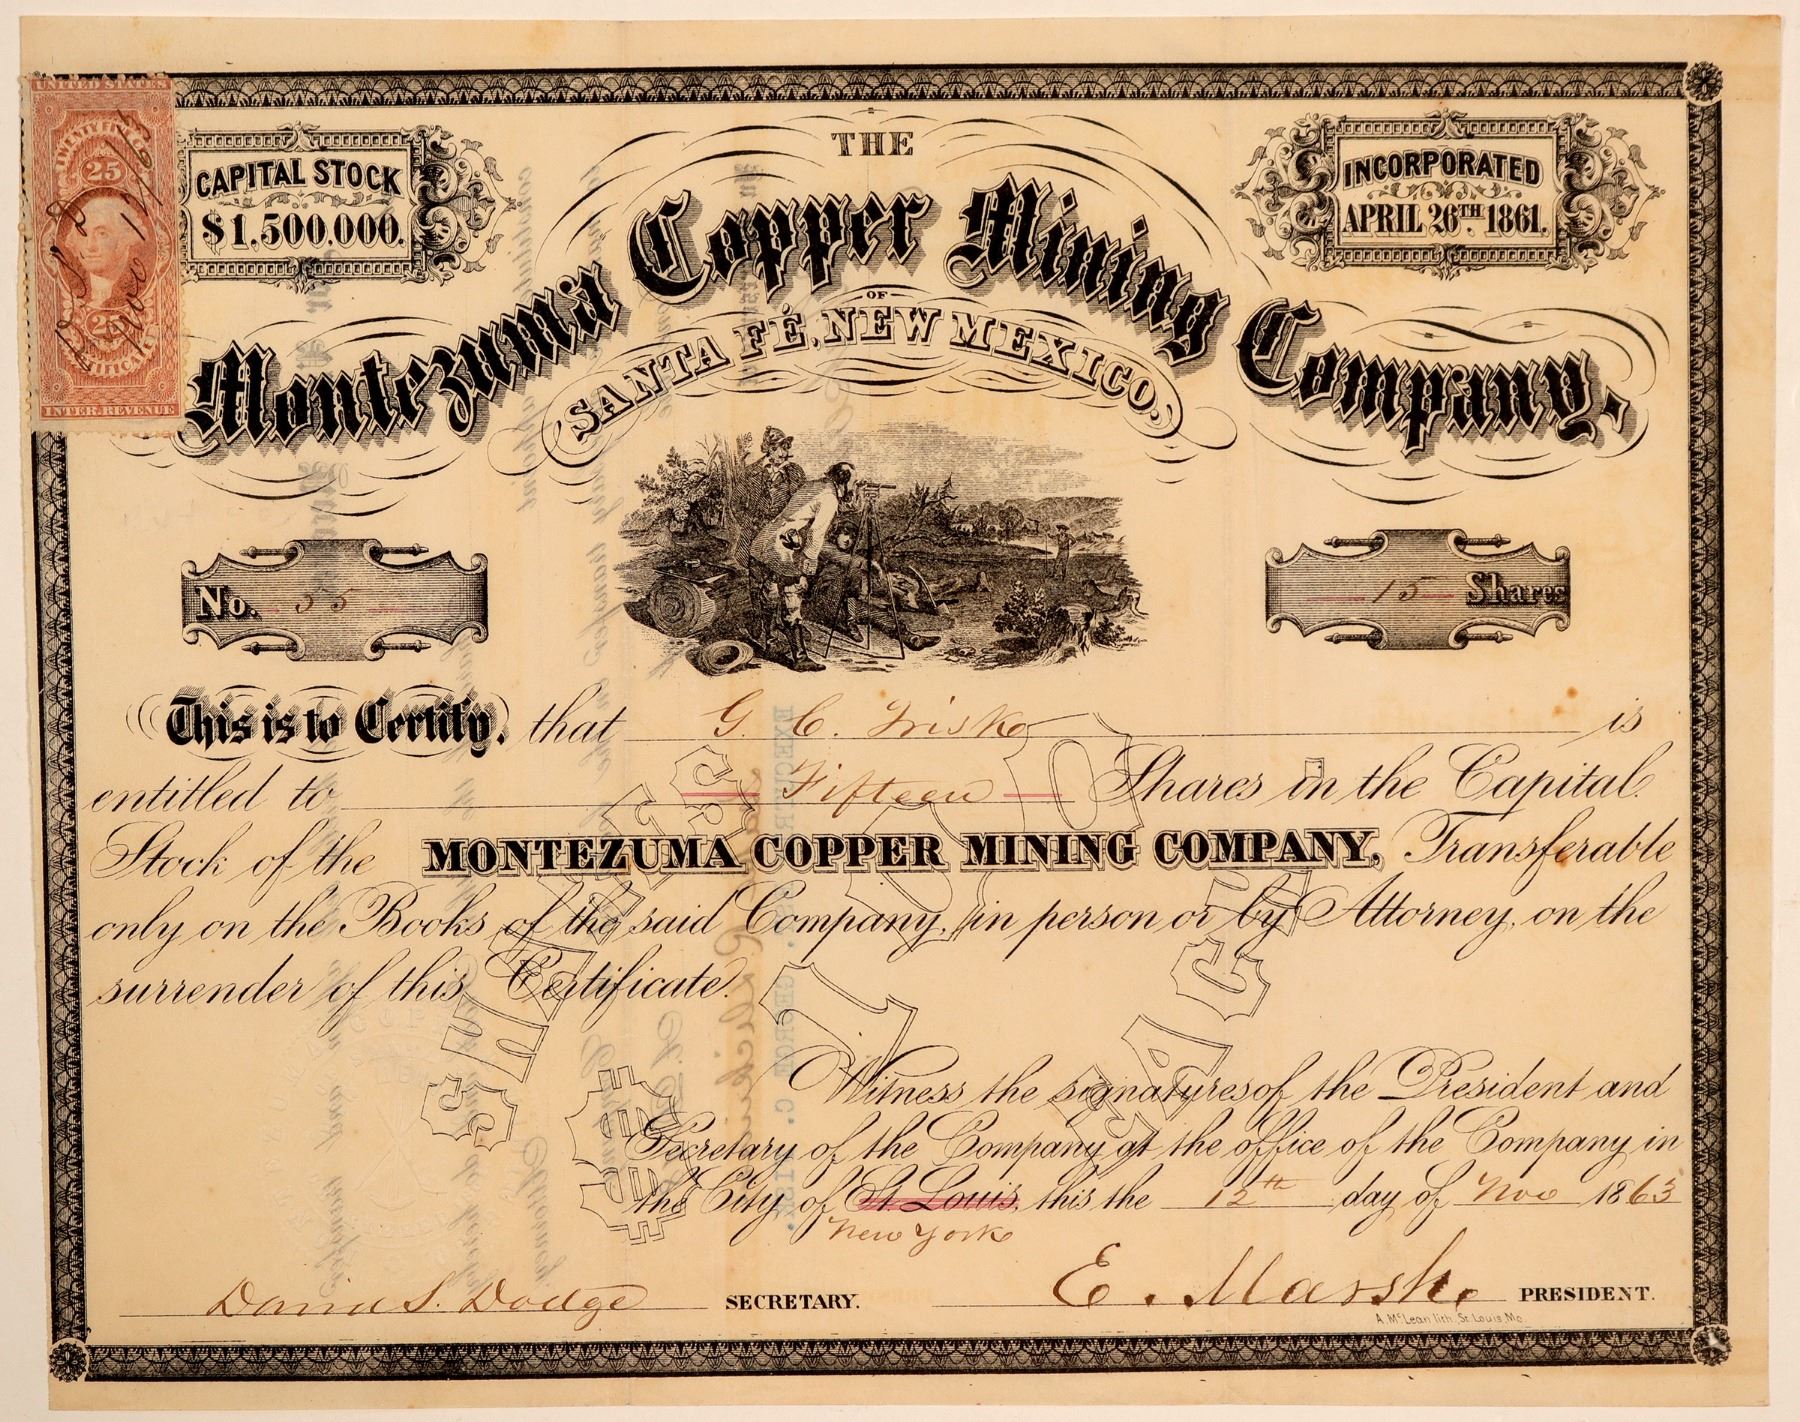 UNITED STATES
25
25
INTER. REVENUE
D. S. D
Nov 12/63
CAPITAL STOCK
$1,500.000.
THE
INCORPORATED
APRIL 26TH 1861.
Montezuma Copper Mining Company.
OF
SANTA FÉ, NEW MEXICO.
No. 55
15 Shares
This is to Certify, that G. C. Trisko is
entitled to Fifteen Shares in the Capital
Stock of the MONTEZUMA COPPER MINING COMPANY, Transferable
only on the Books of the said Company, in person or by Attorney, on the
surrender of this Certificate.
Witness the signatures of the President and
Secretary of the Company at the office of the Company in
the City of St. Louis, this the 12th day of Nov 1863
New York
David S. Dodge SECRETARY.
E. Marsh. PRESIDENT.
A. McLean lith. St. Louis, Mo.